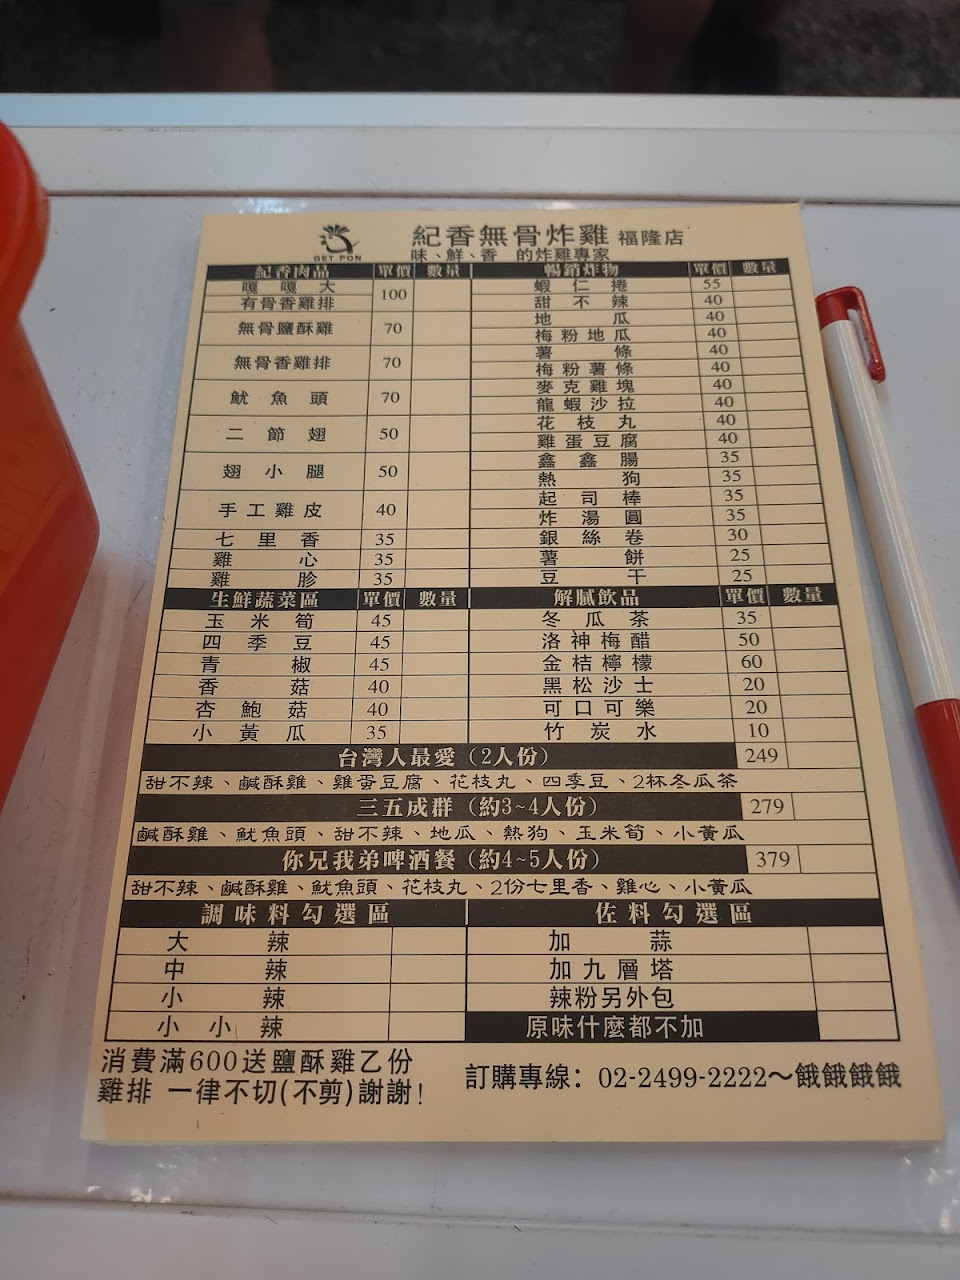 GET PON
紀香無骨炸雞 福隆店
味、鮮、香 的炸雞專家
紀香肉品 單價 數量
嘎嘎大
有骨香雞排 100
無骨鹽酥雞 70
無骨香雞排 70
魷魚頭 70
二節翅 50
翅小腿 50
手工雞皮 40
七里香 35
雞心 35
雞胗 35
暢銷炸物 單價 數量
蝦仁捲 55
甜不辣 40
地瓜 40
梅粉地瓜 40
薯條 40
梅粉薯條 40
麥克雞塊 40
龍蝦沙拉 40
花枝丸 40
雞蛋豆腐 40
鑫鑫腸 35
熱狗 35
起司棒 35
炸湯圓 35
銀絲卷 30
薯餅 25
豆干 25
生鮮蔬菜區 單價 數量
玉米筍 45
四季豆 45
青椒 45
香菇 40
杏鮑菇 40
小黃瓜 35
解膩飲品 單價 數量
冬瓜茶 35
洛神梅醋 50
金桔檸檬 60
黑松沙士 20
可口可樂 20
竹炭水 10
台灣人最愛（2人份） 249
甜不辣、鹹酥雞、雞蛋豆腐、花枝丸、四季豆、2杯冬瓜茶
三五成群（約3~4人份） 279
鹹酥雞、魷魚頭、甜不辣、地瓜、熱狗、玉米筍、小黃瓜
你兄我弟啤酒餐（約4~5人份） 379
甜不辣、鹹酥雞、魷魚頭、花枝丸、2份七里香、雞心、小黃瓜
調味料勾選區
大辣
中辣
小辣
小小辣
佐料勾選區
加蒜
加九層塔
辣粉另外包
原味什麼都不加
消費滿600送鹽酥雞乙份
雞排 一律不切(不剪)謝謝!
訂購專線：02-2499-2222～餓餓餓餓